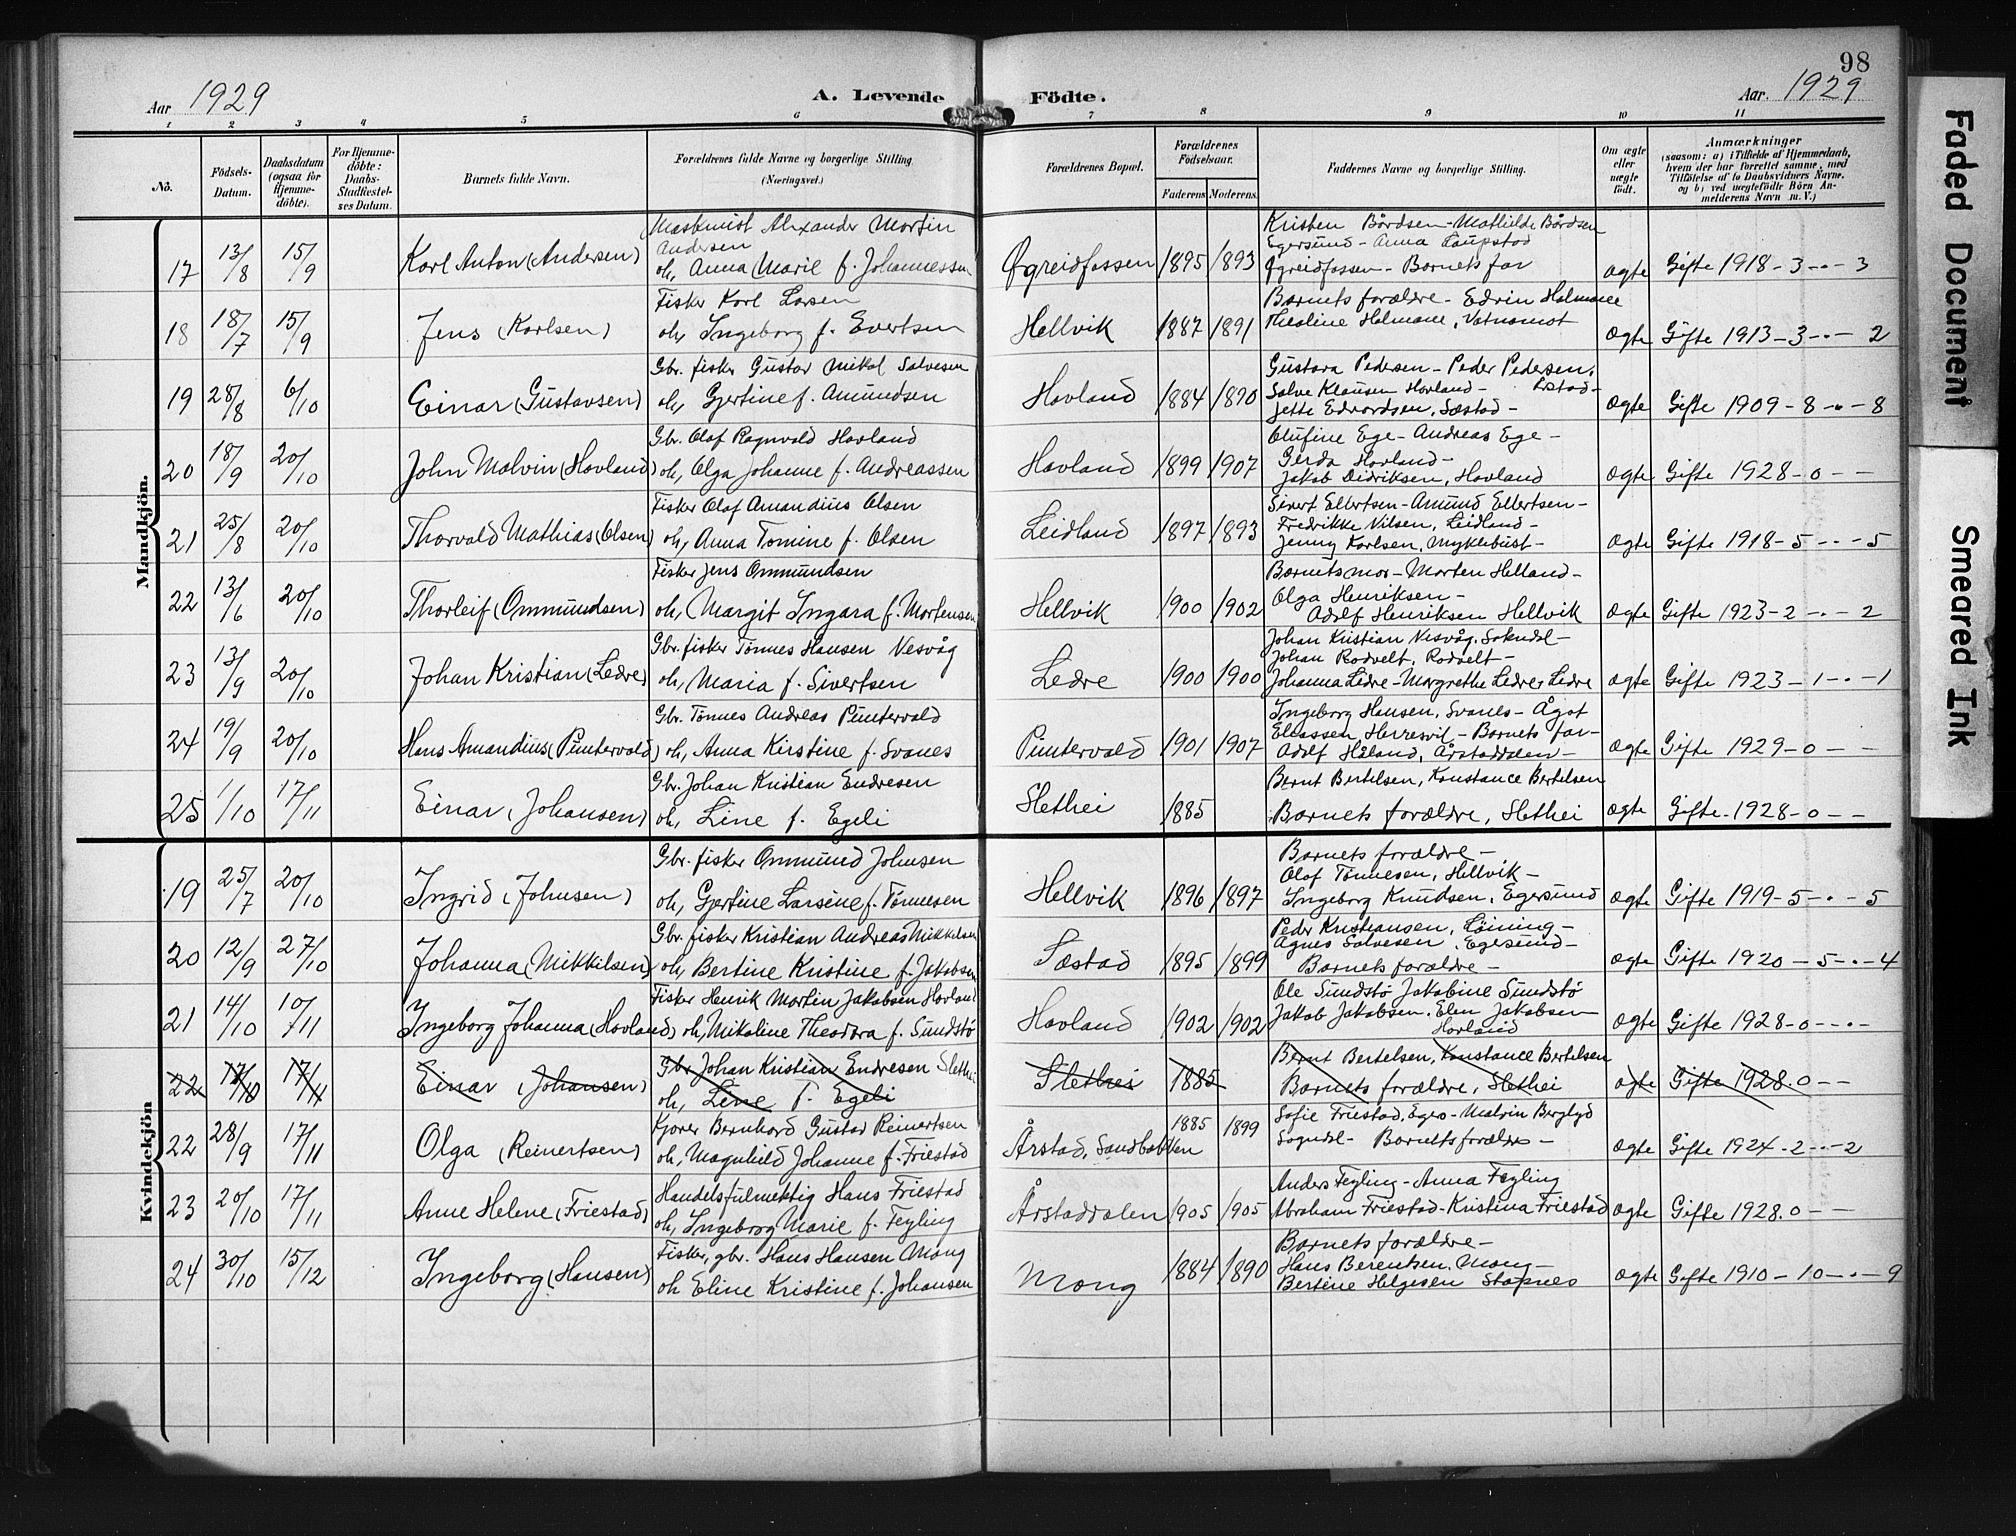 98
Aar 1929 A. Levende Födte. Aar. 1929
1 2 3 4 5 6 7 8 9 10 11
No. Födsels-Datum. Daabsdatum (ogsaa for Hjemme-döbte). For Hjemme-döbte: Daabs-Stadfæstel-ses Datum. Barnets fulde Navn. Forældrenes fulde Navne og borgerlige Stilling (Næringsvei.) Forældrenes Bopæl. Forældrenes Födselsaar. Faderens Moderens. Faddernes Navne og borgerlige Stilling. Om ægte eller uægte födt. Anmærkninger (saasom: a) i Tilfælde af Hjemmedaab, hvem der har forrettet samme, med Tilföielse af to Daabsvidners Navne, og b) ved uægtefödte Börn An-melderens Navn m. V.)
Mandkjön.
Maskinist Alexander Martin Kristen Bårdsen - Mathilde Bårdsen
Andersen Egersund - Anna Laupstad
17 13/8 15/9 Karl Anton (Andersen) oh, Anna Marie f. Johannessen Øgreidfossen 1895 1893 Øgreidfossen - Barnets far ægte Gifte 1918 - 3 - - 3
Fisker Karl Larsen Barnets forældre - Edvin Helmane
18 18/7 15/9 Jens (Karlsen) oh, Ingeborg f. Evertsen Hellvik 1887 1891 Thealine Helmane, Vatnamot ægte Gifte 1913 - 3 - - 2
Gbr. fisker Gustav Mikal Salvesen Gustava Pedersen - Peder Pedersen,
Salve Klausen Hovland - Årstad -
19 28/8 6/10 Einar (Gustavsen) oh, Gjertine f. Amundsen Hovland 1884 1890 Jette Edvardsen, Sæstad - ægte Gifte 1909 - 8 - - 8
Gbr. Olaf Ragnvald Hovland Olufine Ege - Andreas Ege -
Gerda Hovland -
20 18/9 20/10 John Malvin (Hovland) oh, Olga Johanne f. Andreassen Hovland 1899 1907 Jakob Didriksen, Hovland ægte Gifte 1928 - 0 - -
Fisker Olaf Amandius Olsen Sivert Ellertsen - Amund Ellertsen -
Fredrikke Nilsen, Leidland -
21 25/8 20/10 Thorvald Mathias (Olsen) oh, Anna Tomine f. Olsen Leidland 1897 1893 Jenny Karlsen, Myklebust - ægte Gifte 1918 - 5 - - 5
Fisker Jens Ommundsen Barnets mor - Morten Helland -
Olga Henriksen -
22 13/6 20/10 Thorleif (Ommundsen) oh, Margit Ingara f. Mortensen Hellvik 1900 1902 Adolf Henriksen Hellvik ægte Gifte 1923 - 2 - - 2
Gbr. fisker Tønnes Hansen Vesvåg Johan Kristian Vesvåg, Sokndal -
Johan Rodvelt, Rodvelt -
23 13/9 20/10 Johan Kristian (Ledre) oh, Maria f. Sivertsen Ledre 1900 1900 Johanna Ledre - Margrethe Ledre, Ledre ægte Gifte 1923 - 1 - - 1
Gbr. Tønnes Andreas Puntervold Ingeborg Hansen, Svanes - Ågot
Eliassen Herresvik - Barnets far -
24 19/9 20/10 Hans Amandius (Puntervold) oh, Anna Kirstine f. Svanes Puntervold 1901 1907 Adolf Håland, Årstaddalen - ægte Gifte 1929 - 0 - -
Gbr. Johan Kristian Endresen Bernt Bertelsen, Konstance Bertelsen
25 1/10 17/11 Einar (Johansen) oh, Line f. Egeli Slethei 1885 Barnets forældre, Slethei ægte Gifte - 1928 - 0 - -
Kvindekjön
Gbr. fisker Ommund Johnsen Barnets forældre -
Olaf Tønnesen, Hellvik -
19 25/7 20/10 Ingrid (Johnsen) oh, Gjertine Larsine f. Tønnesen Hellvik 1896 1897 Ingeborg Knudsen, Egersund ægte Gifte 1919 - 5 - - 5
Gbr. fisker Kristian Andreas Mikkelsen Peder Kristiansen, Løining -
Agnes Salvesen, Egersund -
20 12/9 27/10 Johanna (Mikkilsen) oh, Bertine Kristine f. Jakobsen Sæstad 1895 1899 Barnets forældre - ægte Gifte 1920 - 5 - - 4
Fisker Henrik Martin Jakobsen Hovland Ole Sundstø Jakobine Sundstø
Jakob Jakobsen, Elen Jakobsen
21 14/10 10/11 Ingeborg Johanna (Hovland) oh, Mikaline Theodora f. Sundstø Hovland 1902 1902 Hovland ægte Gifte 1928 - 0 - -
Gbr Johan Kristian Endresen Slethei Bernt Bertelsen, Konstance Bertelsen
22 17/10 17/11 Einar (Johansen) oh, Line f. Egeli Slethei 1885 Barnets forældre, Slethei ægte Gifte 1928. 0 - -
Kjører Bernhard Gustav Reinertsen 1885 1899 Sofie Friestad, Egers - Malvin Berglyd
22 28/9 17/11 Olga (Reinertsen) oh, Magnhild Johanne f. Friestad Årstad, Sandbakken Sogndal - Barnets forældre - ægte Gifte 1924 - 2 - - 2
Handelsfulmektig Hans Friestad Anders Teyling - Anna Teyling
23 20/10 17/11 Anne Helene (Friestad) oh, Ingeborg Marie f. Teyling Årstaddalen 1905 1905 Abraham Friestad - Kristina Friestad ægte Gifte 1928. 0 - -
Fisker, gbr. Hans Hansen Mong Barnets forældre -
Hans Berentsen, Mong -
24 30/10 15/12 Ingeborg (Hansen) oh Eline Kristine f. Johansen Mong 1884 1890 Bertine Helgesen Stapnes ægte Gifte 1910 - 10 - - 9
Faded Document
Smeared Ink